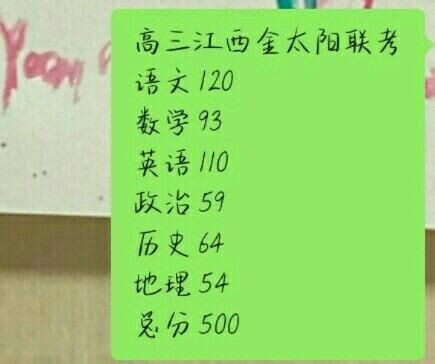 Yoom
高三江西金太阳联考
语文120
数学93
英语110
政治59
历史64
地理54
总分500